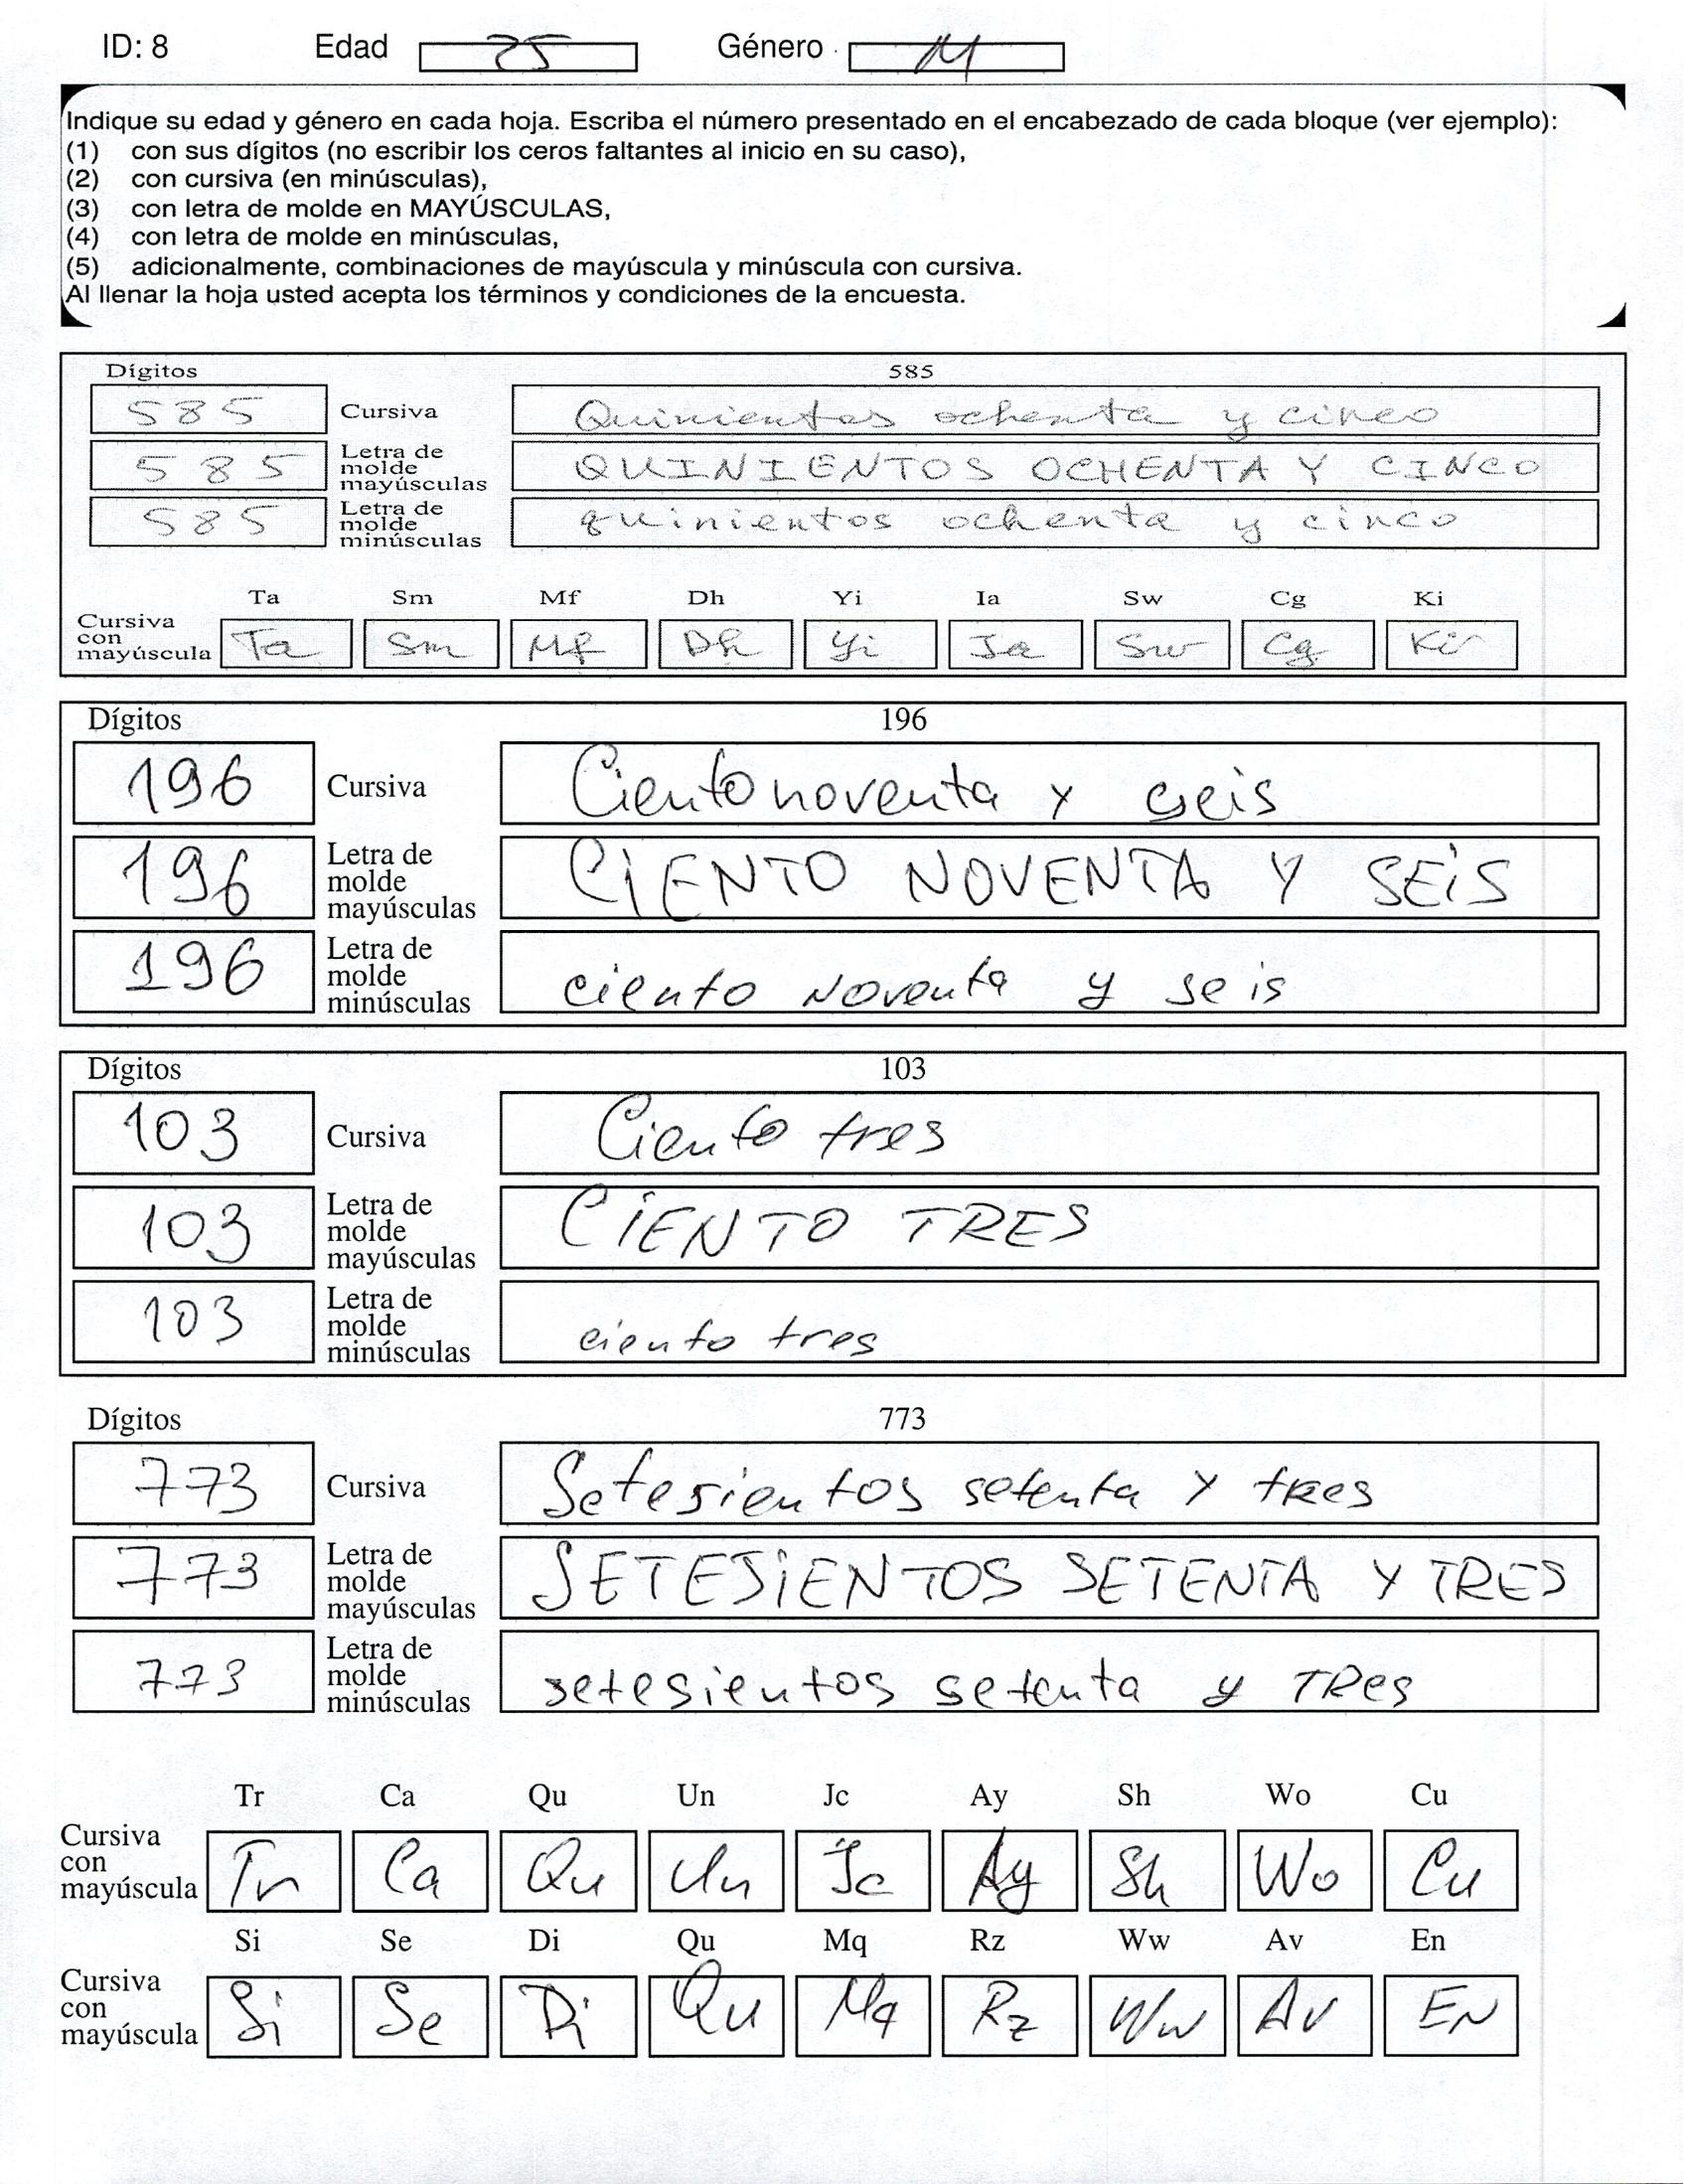 ID: 8 Edad 25 Género M
Indique su edad y género en cada hoja. Escriba el número presentado en el encabezado de cada bloque (ver ejemplo):
(1) con sus dígitos (no escribir los ceros faltantes al inicio en su caso),
(2) con cursiva (en minúsculas),
(3) con letra de molde en MAYÚSCULAS,
(4) con letra de molde en minúsculas,
(5) adicionalmente, combinaciones de mayúscula y minúscula con cursiva.
Al llenar la hoja usted acepta los términos y condiciones de la encuesta.
Dígitos 585
585 Cursiva Quinientos ochenta y cinco
585 Letra de molde mayúsculas QUINIENTOS OCHENTA Y CINCO
585 Letra de molde minúsculas quinientos ochenta y cinco
Ta Sm Mf Dh Yi Ia Sw Cg Ki
Cursiva con mayúscula Ta Sm Mf Dh Yi Ia Sw Cg Ki
Dígitos 196
196 Cursiva Ciento noventa y seis
196 Letra de molde mayúsculas CiENTO NOVENTA Y SEiS
196 Letra de molde minúsculas ciento noventa y seis
Dígitos 103
103 Cursiva Ciento tres
103 Letra de molde mayúsculas CiENTO TRES
103 Letra de molde minúsculas ciento tres
Dígitos 773
773 Cursiva Setesientos setenta y tres
773 Letra de molde mayúsculas SETESiENTOS SETENTA Y TRES
773 Letra de molde minúsculas setesientos setenta y TRes
Tr Ca Qu Un Jc Ay Sh Wo Cu
Cursiva con mayúscula Tr Ca Qu Un Jc Ay Sh Wo Cu
Si Se Di Qu Mq Rz Ww Av En
Cursiva con mayúscula Si Se Di Qu Mq Rz Ww Av EN